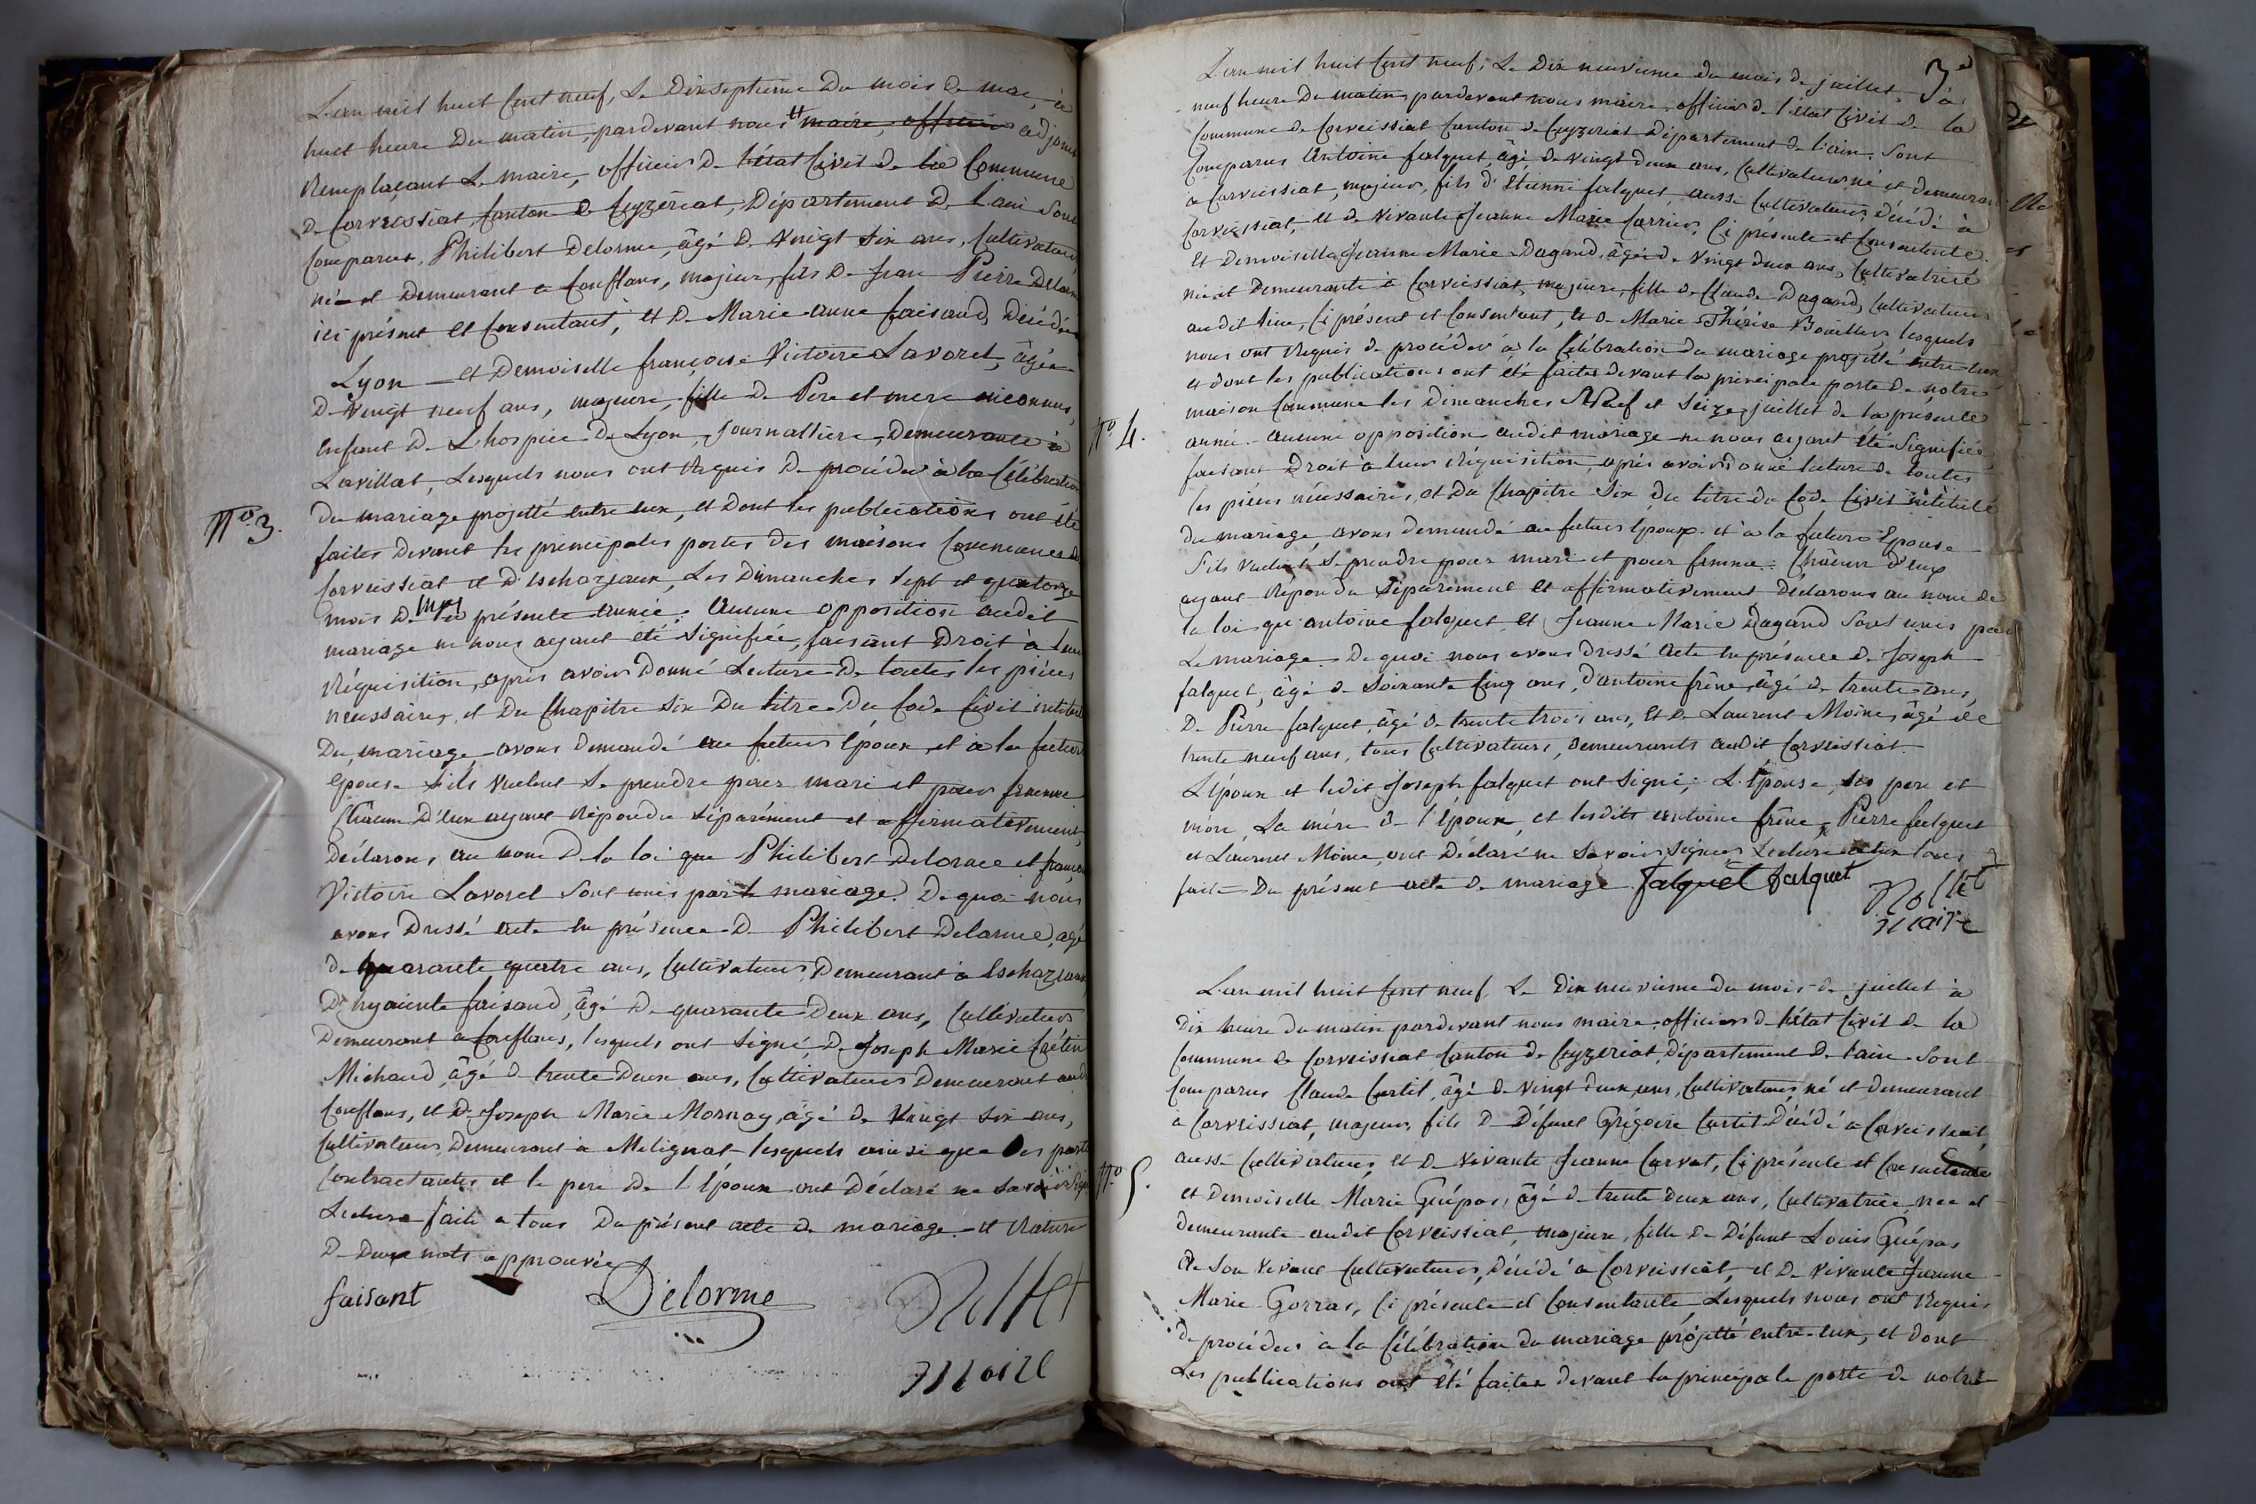 L'an mil huit cent neuf, le dixseptieme du mois de mai, à
huit heure du matin, pardevant nous maire, officier adjoint
remplaçant le maire, officier de l'état civil de la Commune
de Corveissiat, canton de Ceyzériat, Département de l'ain sont
comparus, Philibert Delorme, âgé de vingt six ans, Cultivateur,
né et demeurant a Conflans, majeur, fils de Jean Pierre Delorme
ici présent et consentant, et de Marie anne faisand, décédée
Lyon — et Demoiselle françoise Victoire Lavorel, âgée
de vingt neuf ans, majeure, fille de Pere et mere inconnus,
enfant de L'hospice de Lyon, Journalliere, demeurante à
Lavillat, Lesquels nous ont requis de procéder à la Célébration
N° 3.
du mariage projetté entre eux, et dont les publications ont été
faites devant les principales portes des maisons Communes de
Corveissiat et d'Eschazeaux, Les Dimanches sept et quatorze
mois de mai présente année. Aucune opposition audit
mariage ne nous ayant été signifiée, faisant Droit à leur
réquisition, après avoir donné Lecture de toutes les pièces
nécessaires, et du Chapitre six du titre du Code Civil intitulé
Du mariage, avons demandé au futur époux et à la future
épouse s'ils veulent se prendre pour mari et pour femme
Chacun d'eux ayant répondu séparément et affirmativement,
Déclarons, au nom de la loi que Philibert Delorme et françoise
Victoire Lavorel sont unis par le mariage. De quoi nous
avons Dressé acte en présence de Philibert Delorme, agé
de quarante quatre ans, Cultivateur, Demeurant à Eschazeaux,
D'hyacinte faisand, âgé de quarante deux ans, Cultivateur
Demeurant a Conflans, lesquels ont signé, de Joseph Marie Crétin
Michaud, âgé de trente deux ans, Cultivateur Demeurant audit
Conflans, et de Joseph Marie Mornay, âgé de vingt six ans,
Cultivateur, Demeurant à Metignat lesquels ainsi que les parties
Contractantes et le pere de l'Époux ont Déclaré ne savoir signer
Lecture faite a tous du présent acte de mariage et rature
de deux mots approuvée
faisant Delorme
Maire
3e
L'an mil huit cent neuf, le dix neuvieme du mois de juillet, à
neuf heure du matin, pardevant nous maire, officier de l'état Civil de la
Commune de Corveissiat Canton de Ceyzeriat Département de l'ain, sont
Comparus Antoine falquet, âgé de vingt deux ans, Cultivateur, né et demeurant
a Corveissiat, majeur, fils d'Etienne falquet, aussi Cultivateur, décédé à
Corveissiat, et de vivante Jeanne Marie Carrier, Ci présente et Consentente.
Et Demoiselle Jeanne Marie Dagand, âgée de vingt deux ans, Cultivatrice
née et demeurante à Corveissiat, majeure, fille de Claude Dagand, Cultivateur
audit lieu, Ci présent et Consentant, et de Marie Thérèse Bouiller lesquels
nous ont requis de procéder à la Célébration du mariage projetté entre eux,
et dont les publications ont été faites devant la principale porte de notre
maison Commune les Dimanches Neuf et seize juillet de la présente
N° 4.
année. aucune opposition audit mariage ne nous ayant été signifiée,
faisant Droit à leur réquisition, après avoir donné lecture de toutes
les pièces nécessaires, et du Chapitre six du titre du Code Civil intitulé
du mariage, avons demandé au futur époux et à la future Épouse
s'ils veulent se prendre pour mari et pour femme. Chacun d'eux
ayant répondu séparément et affirmativement Déclarons au nom de
la loi que antoine falquet et Jeanne Marie Dagand sont unis par
Le mariage. De quoi nous avons dressé acte en présence de Joseph
falquet, âgé de soixante cinq ans, d'antoine frêne, âgé de trente ans,
de Pierre falquet, âgé de trente trois ans, et de Laurent Moine, âgé de
trente neuf ans, tous Cultivateurs, demeurants audit Corveissiat.
L'époux et ledit Joseph falquet ont signé; L'épouse, ses pere et
mère, La mère de l'époux, et lesdits antoine frêne, Pierre falquet
et Laurent Moine, ont Déclaré ne savoir signer, Lecture a eux tous
faite du présent acte de mariage. falquet falquet
Maire
L'an mil huit cent neuf, le dix neuvieme du mois de juillet à
dix heure du matin pardevant nous maire officier de l'état Civil de la
Commune de Corveissiat Canton de Ceyzeriat, Département de l'ain sont
Comparus Claude Curtil, âgé de vingt deux ans, Cultivateur, né et demeurant
à Corveissiat, majeur, fils de défunt Grégoire Curtil Décédé à Corveissiat,
aussi Cultivateur, et de vivante Jeanne Carvat, Ci présente et Consentante
N° 5.
et demoiselle Marie Guépas, âgé de trente deux ans, Cultivatrice, née et
demeurante audit Corveissiat, majeure, fille de Défunt Louis Guépas
de son vivant Cultivateur, Décédé à Corveissiat, et de vivante Jeanne
Marie Gorras, Ci présente et Consentante Lesquels nous ont requis
de procéder à la Célébration du mariage projetté entre eux, et dont
Les publications ont été faites devant la principale porte de notre